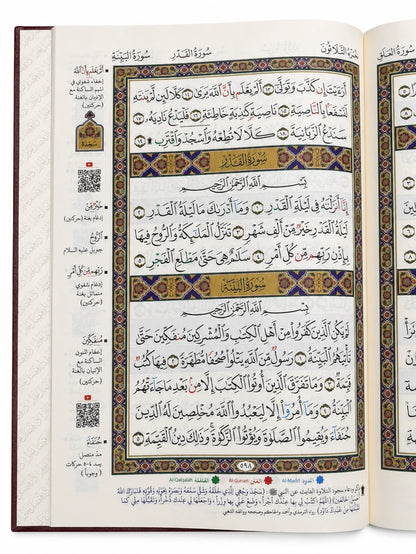 سُورَةُ البَيِّنَةِ
سُورَةُ القَدْرِ
الجُزْءُ الثَّلَاثُونَ
أَرَءَيْتَ إِن كَذَّبَ وَتَوَلَّىٰٓ ١٣ أَلَمْ يَعْلَم بِأَنَّ ٱللَّهَ يَرَىٰ ١٤ كَلَّا لَئِن لَّمْ يَنتَهِ
لَنَسْفَعًۢا بِٱلنَّاصِيَةِ ١٥ نَاصِيَةٍ كَٰذِبَةٍ خَاطِئَةٍ ١٦ فَلْيَدْعُ نَادِيَهُۥ ١٧
سَنَدْعُ ٱلزَّبَانِيَةَ ١٨ كَلَّا لَا تُطِعْهُ وَٱسْجُدْ وَٱقْتَرِب ۩ ١٩
سُورَةُ القَدْرِ
بِسْمِ ٱللَّهِ ٱلرَّحْمَٰنِ ٱلرَّحِيمِ
إِنَّآ أَنزَلْنَٰهُ فِي لَيْلَةِ ٱلْقَدْرِ ١ وَمَآ أَدْرَىٰكَ مَا لَيْلَةُ ٱلْقَدْرِ ٢
لَيْلَةُ ٱلْقَدْرِ خَيْرٌ مِّنْ أَلْفِ شَهْرٍ ٣ تَنَزَّلُ ٱلْمَلَٰٓئِكَةُ وَٱلرُّوحُ فِيهَا
بِإِذْنِ رَبِّهِم مِّن كُلِّ أَمْرٍ ٤ سَلَٰمٌ هِيَ حَتَّىٰ مَطْلَعِ ٱلْفَجْرِ ٥
سُورَةُ البَيِّنَةِ
بِسْمِ ٱللَّهِ ٱلرَّحْمَٰنِ ٱلرَّحِيمِ
لَمْ يَكُنِ ٱلَّذِينَ كَفَرُوا۟ مِنْ أَهْلِ ٱلْكِتَٰبِ وَٱلْمُشْرِكِينَ مُنفَكِّينَ حَتَّىٰ
تَأْتِيَهُمُ ٱلْبَيِّنَةُ ١ رَسُولٌ مِّنَ ٱللَّهِ يَتْلُوا۟ صُحُفًا مُّطَهَّرَةً ٢ فِيهَا كُتُبٌ
قَيِّمَةٌ ٣ وَمَا تَفَرَّقَ ٱلَّذِينَ أُوتُوا۟ ٱلْكِتَٰبَ إِلَّا مِنۢ بَعْدِ مَا جَآءَتْهُمُ
ٱلْبَيِّنَةُ ٤ وَمَآ أُمِرُوٓا۟ إِلَّا لِيَعْبُدُوا۟ ٱللَّهَ مُخْلِصِينَ لَهُ ٱلدِّينَ
حُنَفَآءَ وَيُقِيمُوا۟ ٱلصَّلَوٰةَ وَيُؤْتُوا۟ ٱلزَّكَوٰةَ وَذَٰلِكَ دِينُ ٱلْقَيِّمَةِ ٥
٥٩٨
القلقلة Al-Qalqalah
الغنن Al-Gunan
المدود Al-Madd
أَلَمْ يَعْلَم بِأَنَّ ٱللَّهَ
إخفاء شفوي في
الميم الساكنة مع
الإتيان بالغنة
(حركتين)
سَجْدَة
خَيْرٌ مِّنْ
إدغام بغنة (حركتين)
الرُّوحُ
جبريل عليه السلام
رَبِّهِم مِّن كُلِّ أَمْرٍ
إدغام شفوي
متماثل بغنة
(حركتين)
مُنفَكِّينَ
إخفاء النون
الساكنة مع
الإتيان بالغنة
(حركتين)
حُنَفَآءَ
مد متصل
يمد ٤-٥ حركات
(وجوباً)
سُورَةُ العَلَقِ